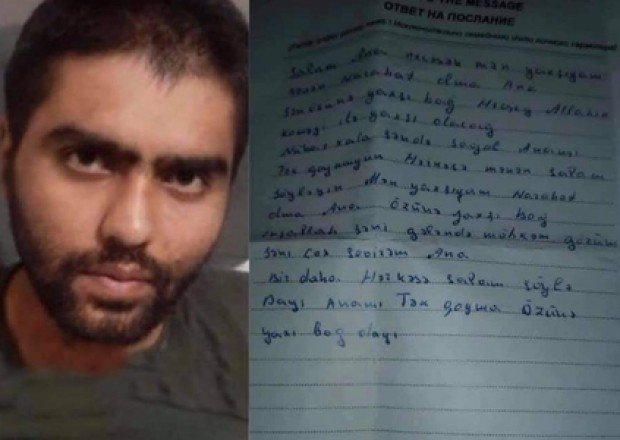 THE MESSAGE
ОТВЕТ НА ПОСЛАНИЕ
Salam Ana mən yaxşıyam
Narahat olma Ana
yaxşı bax Hərşey Allahın
köməyi ilə yaxşı olacag
xala səndə sağol Anamı
Tək qoymuyun Hərkəsə məndən salam
söyləyin Mən yaxşıyam Narahat
olma Ana Özünə yaxşı bax
inşallah səni gələndə möhkəm
səni çox sevirəm Ana
Bir daha Hərkəsə salam söylə
Dayı Anamı Tək qoyma Özünə
yaxı bag dayı